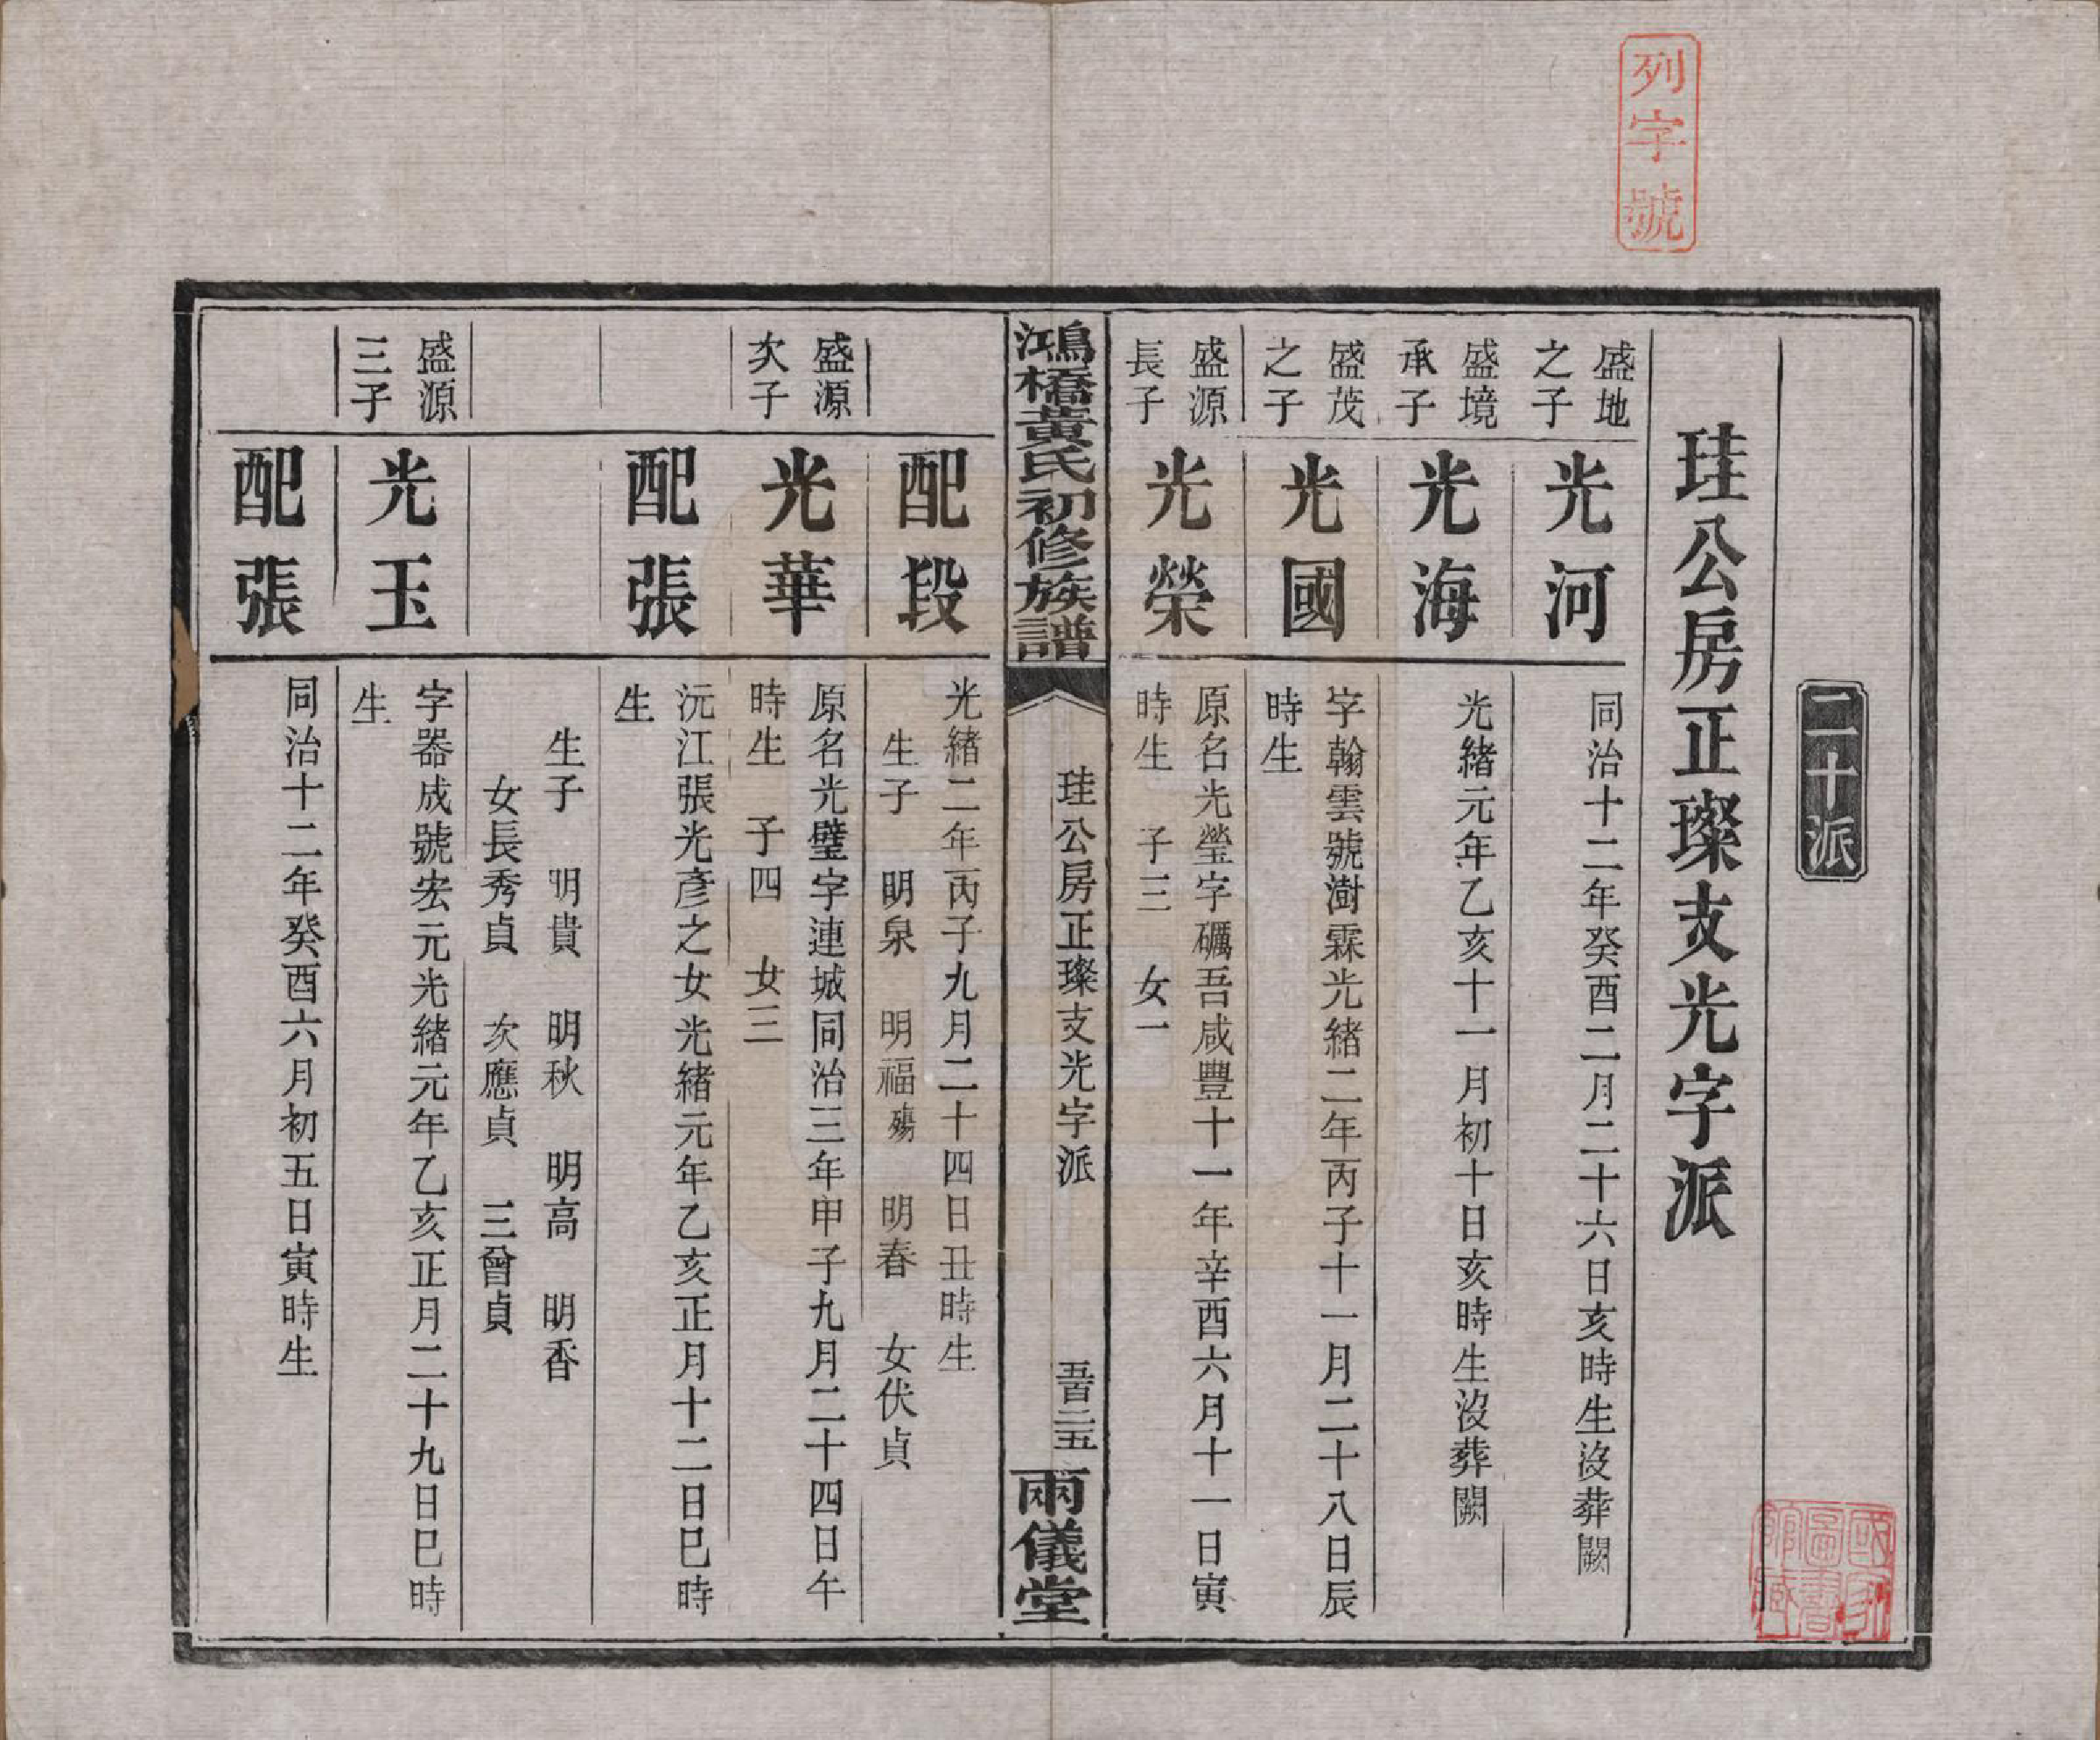 列字號
二十派
珪公房正璨支光字派
盛地
之子
光河
同治十二年癸酉二月二十六日亥時生沒葬闕
盛境
承子
光海
光緒元年乙亥十一月初十日亥時生沒葬闕
盛茂
之子
光國
字翰雲號澍霖光緒二年丙子十一月二十八日辰
時生
盛源
長子
光榮
原名光瑩字礪吾咸豐十一年辛酉六月十一日寅
時生 子三 女一
鴻橋黃氏初修族譜
珪公房正璨支光字派
五百二五
兩儀堂
配段
光緒二年丙子九月二十四日丑時生
生子 明泉 明福殤 明春 女伏貞
盛源
次子
光華
原名光璧字連城同治三年甲子九月二十四日午
時生 子四 女三
配張
沅江張光彥之女光緒元年乙亥正月十二日巳時
生
生子 明貴 明秋 明高 明香
女長秀貞 次應貞 三曾貞
盛源
三子
光玉
字器成號宏元光緒元年乙亥正月二十九日巳時
生
配張
同治十二年癸酉六月初五日寅時生
國家
圖書
館藏